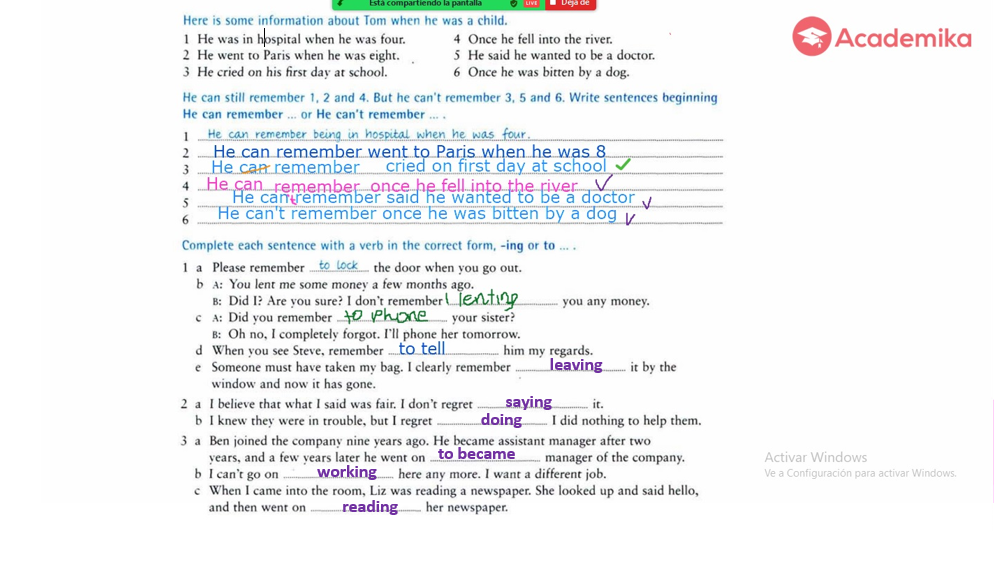 Está compartiendo la pantalla LIVE Deja de
Academika
Here is some information about Tom when he was a child.
1 He was in hospital when he was four.
2 He went to Paris when he was eight.
3 He cried on his first day at school.
4 Once he fell into the river.
5 He said he wanted to be a doctor.
6 Once he was bitten by a dog.
He can still remember 1, 2 and 4. But he can't remember 3, 5 and 6. Write sentences beginning
He can remember ... or He can't remember ... .
1 He can remember being in hospital when he was four.
2 He can remember went to Paris when he was 8
3 He can remember cried on first day at school
4 He can remember once he fell into the river
5 He can't remember said he wanted to be a doctor
6 He can't remember once he was bitten by a dog
Complete each sentence with a verb in the correct form, -ing or to ... .
1 a Please remember to lock the door when you go out.
b A: You lent me some money a few months ago.
B: Did I? Are you sure? I don't remember lenting you any money.
c A: Did you remember to phone your sister?
B: Oh no, I completely forgot. I'll phone her tomorrow.
d When you see Steve, remember to tell him my regards.
e Someone must have taken my bag. I clearly remember leaving it by the
window and now it has gone.
2 a I believe that what I said was fair. I don't regret saying it.
b I knew they were in trouble, but I regret doing I did nothing to help them.
3 a Ben joined the company nine years ago. He became assistant manager after two
years, and a few years later he went on to became manager of the company.
b I can't go on working here any more. I want a different job.
c When I came into the room, Liz was reading a newspaper. She looked up and said hello,
and then went on reading her newspaper.
Activar Windows
Ve a Configuración para activar Windows.